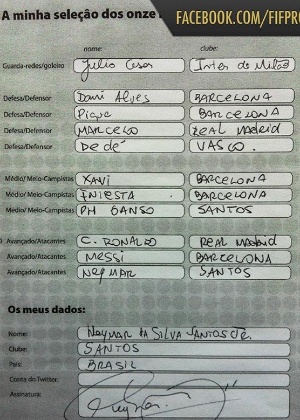 A minha seleção dos onze
FACEBOOK.COM/FIFPRO
nome: clube:
Guarda-redes/goleiro Julio Cesar Inter de Milão
Defesa/Defensor Dani Alves BARCELONA
Defesa/Defensor Pique BARCELONA
Defesa/Defensor MARCELO Real Madrid
Defesa/Defensor Dedé VASCO.
Médio/ Meio-Campistas XAVI BARCELONA
Médio/ Meio-Campistas INIESTA BARCELONA
Médio/ Meio-Campistas PH GANSO SANTOS
Avançado/Atacantes C. RONALDO Real Madrid
Avançado/Atacantes MESSI BARCELONA
Avançado/Atacantes Neymar SANTOS
Os meus dados:
Nome: Neymar da SILVA SANTOS JR.
Clube: SANTOS
País: BRASIL
Conta do Twitter:
Assinatura: